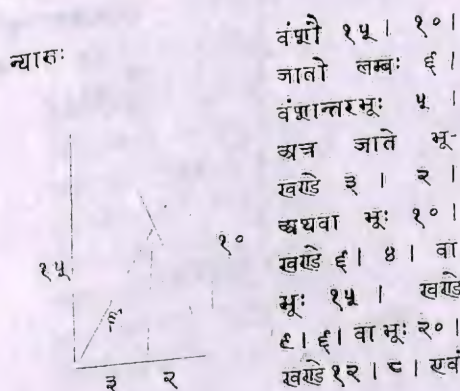 न्यासः
१५
१०
६
३ २
वंशौ १५ । १० ।
जातो लम्बः ६ ।
वंशान्तरभूः ५ ।
अत्र जाते भू-
खण्डे ३ । २ ।
अथवा भूः १० ।
खण्डे ६ । ४ । वा
भूः १५ । खण्डे
९ । ६ । वा भूः २० ।
खण्डे १२ । ८ । एवं